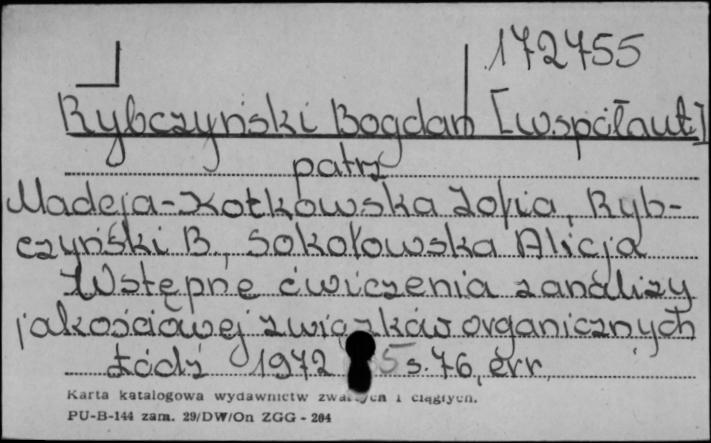 172755
Rybczyński Bogdan [współaut]
patrz
Madeja-Kotkowska Zofia, Ryb-
czyński B., Sokołowska Alicja
Wstępne ćwiczenia z analizy
jakościowej związków organicznych
Łódź 1972 s. 76, err.
Karta katalogowa wydawnictw zwartych i ciągłych.
PU-B-144 zam. 29/DW/On ZGG - 204